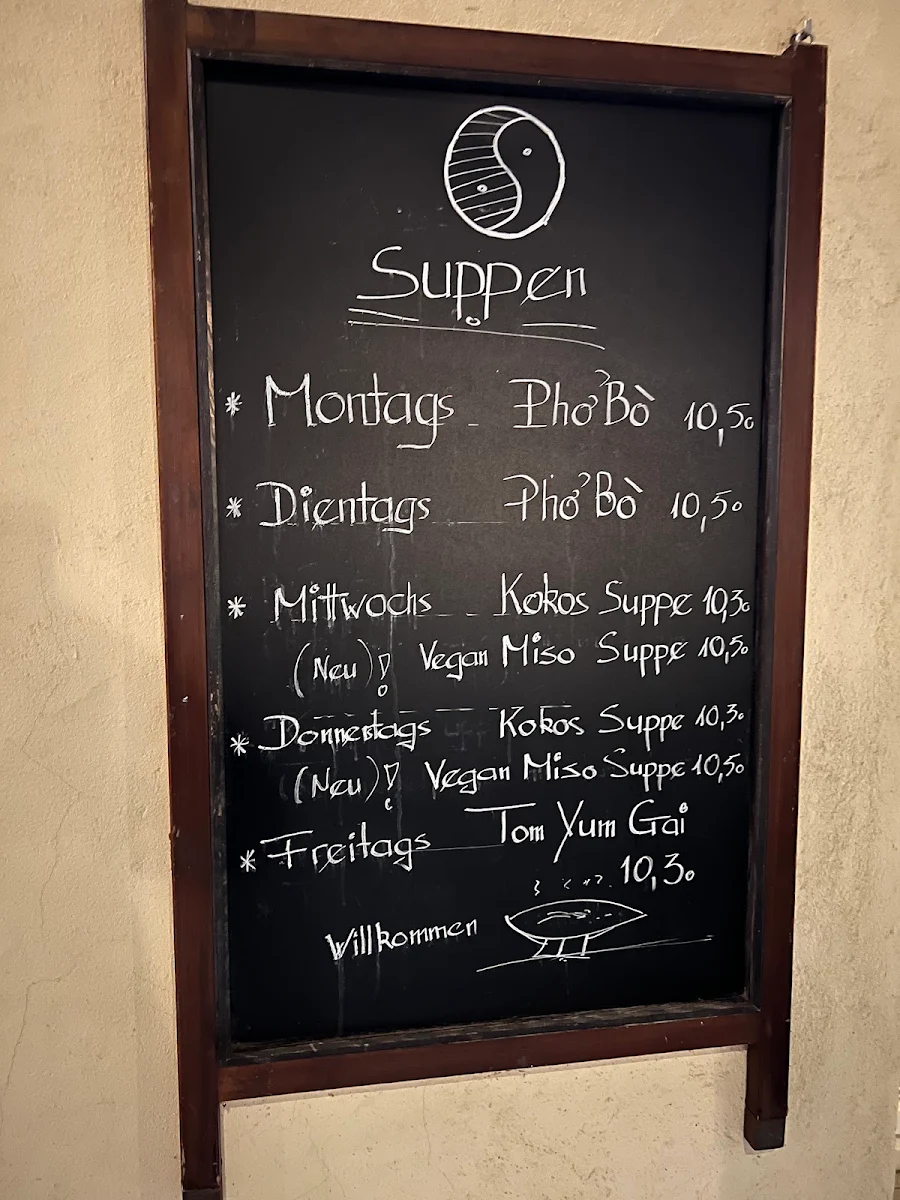 Suppen
* Montags - Phở Bò 10,50
* Dientags Phở Bò 10,50
* Mittwochs Kokos Suppe 10,30
(Neu)! Vegan Miso Suppe 10,50
* Donnerstags Kokos Suppe 10,30
(Neu)! Vegan Miso Suppe 10,50
* Freitags Tom Yum Gai
10,30
Willkommen